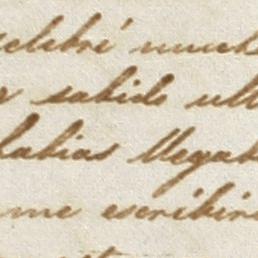 celebré much
r sabido ult
habias llegad
me escribir